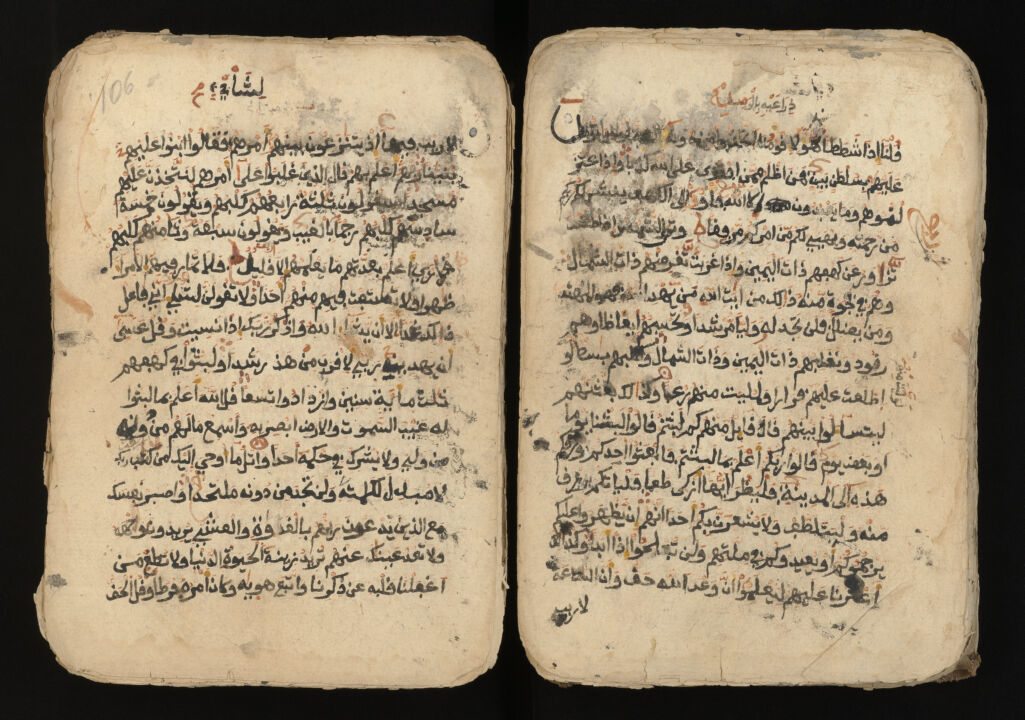 قلنا إذا شططا هؤلاء قومنا اتخذوا من دونه
عليهم بسلطن بين فمن اظلم ممن افترى على الله كذبا وإذ اعتز
لتموهم وما يعبدون إلا الله فأووا إلى الكهف ينشر لكم
من رحمته ويهيئ لكم من امركم مرفقا وترى الشمس إذا طلعت
تزاور عن كهفهم ذات اليمين وإذا غربت تقرضهم ذات الشمال
وهم في فجوة منه ذالك من ءايت الله من يهد الله فهو المهتد
ومن يضلل فلن تجد له وليا مرشدا وتحسبهم ايقاظا وهم
رقود ونقلبهم ذات اليمين وذات الشمال وكلبهم بسط
اطلعت عليهم لوليت منهم فرارا ولملئت منهم رعبا وكذالك بعثنهم
ليتساءلوا بينهم قال قايل منهم كم لبثتم قالوا لبثنا يوما
او بعض يوم قالوا ربكم أعلم بما لبثتم فابعثوا احدكم بورقكم
هذه إلى المدينة فلينظر أيها أزكى طعاما فلياتكم برزق
منه وليتلطف ولا يشعرن بكم أحدا انهم إن يظهروا عليكم
يرجموكم أو يعيدوكم في ملتهم ولن تفلحوا إذا ابدا وكذالك
أعثرنا عليهم ليعلموا أن وعد الله حق وان الساعة
لا ريب
106
لا ريب فيها إذ يتنزعون بينهم أمرهم فقالوا ابنوا عليهم
بنينا ربهم أعلم بهم قال الذين غلبوا على أمرهم لنتخذن عليهم
مسجدا سيقولون ثلثة رابعهم كلبهم ويقولون خمسة
سادسهم كلبهم رجما بالغيب ويقولون سبعة وثامنهم كلبهم
قل ربي أعلم بعدتهم ما يعلمهم إلا قليل فلا تمار فيهم إلا مراء
ظهرا ولا تستفت فيهم منهم أحدا ولا تقولن لشيء إني فاعل
ذالك غدا إلا أن يشاء الله واذكر ربك إذا نسيت وقل عسى
أن يهدين ربي لأقرب من هذا رشدا ولبثوا في كهفهم
ثلث ماية سنين وازدادوا تسعا قل الله أعلم بما لبثوا
له غيب السموت والارض ابصر به وأسمع ما لهم من دونه
من ولي ولا يشرك في حكمه أحدا واتل ما أوحي إليك من كتاب ربك
لا مبدل لكلمته ولن تجد من دونه ملتحدا واصبر نفسك
مع الذين يدعون ربهم بالغدوة والعشي يريدون وجهه
ولا تعد عينك عنهم تريد زينة الحيوة الدنيا ولا تطع من
اغفلنا قلبه عن ذكرنا واتبع هويه وكان أمره فرطا وقل الحق